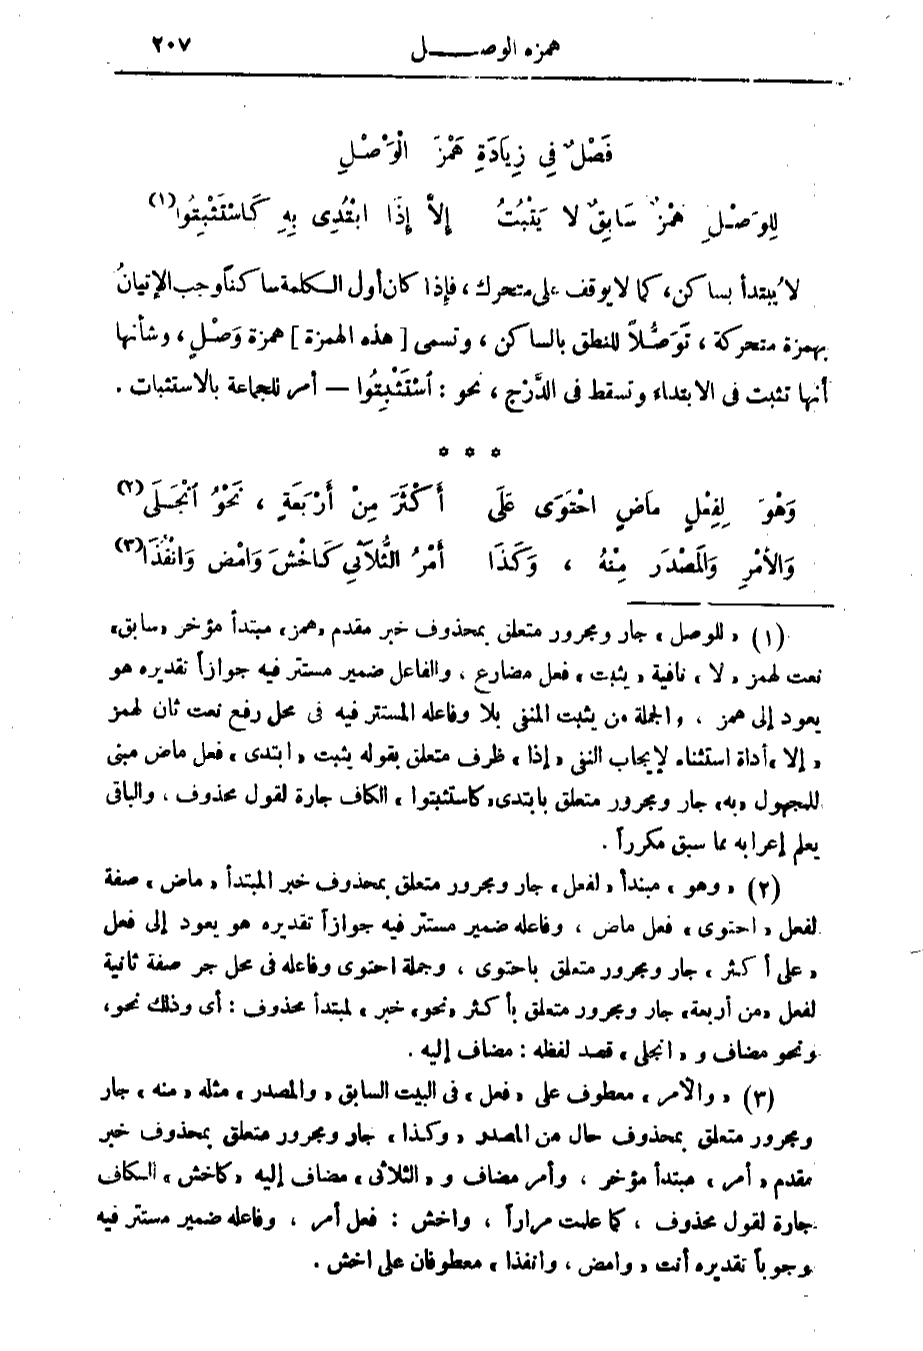 همزه الوصـــل ٢٠٧
فَصْلٌ فِي زِيَادَةِ هَمْزَ الْوَصْلِ
لِلوَصْلِ هَمْزٌ سَابِقٌ لا يَثْبُتُ إِلاَّ إِذَا ابْتُدِى بِهِ كَاسْتَثْبِتُوا (١)
لا يُبتدأ بساكن، كما لا يوقف على متحرك، فإذا كان أول الكلمة ساكناً وجب الإتيانُ
بهمزة متحركة، تَوَصُّلاً للنطق بالساكن، وتسمى [ هذه الهمزة ] همزة وَصْلٍ، وشأنها
أنها تثبت فى الابتداء وتسقط فى الدَّرْج، نحو : ٱسْتَثْبِتُوا — أمر للجماعة بالاستثبات .
* * *
وَهْوَ لِفِعْلٍ مَاضٍ احْتَوَى عَلَى أَكْثَرَ مِنْ أَرْبَعَةٍ ، نَحْوُ ٱنْجَلَى (٢)
وَالأَمْرِ وَالمَصْدَرِ مِنْهُ ، وَكَذَا أَمْرُ الثُّلاَثِي كَاخْشَ وَامْضِ وَانْفُذَا (٣)
(١) « للوصل » جار ومجرور متعلق بمحذوف خبر مقدم «همز» مبتدأ مؤخر «سابق»
نعت لهمز « لا » نافية « يثبت » فعل مضارع ، والفاعل ضمير مستتر فيه جوازاً تقديره هو
يعود إلى همز ، والجملة من يثبت المنفى بلا وفاعله المستتر فيه فى محل رفع نعت ثان لهمز
« إلا » أداة استثناء لإيجاب النفى « إذا » ظرف متعلق بقوله يثبت « ابتدى » فعل ماض مبنى
للمجهول «به» جار ومجرور متعلق بابتدى «كاستثبتوا » الكاف جارة لقول محذوف ، والباقى
يعلم إعرابه مما سبق مكرراً .
(٢) « وهو » مبتدأ « لفعل » جار ومجرور متعلق بمحذوف خبر المبتدأ « ماض » صفة
لفعل « احتوى » فعل ماض ، وفاعله ضمير مستتر فيه جوازاً تقديره هو يعود إلى فعل
« على أكثر » جار ومجرور متعلق باحتوى ، وجملة احتوى وفاعله فى محل جر صفة ثانية
لفعل «من أربعة» جار ومجرور متعلق بأكثر «نحو» خبر » لمبتدأ محذوف : أى وذلك نحو،
ونحو مضاف و « انجلى » قصد لفظه : مضاف إليه .
(٣) « والأمر » معطوف على « فعل » فى البيت السابق « والمصدر » مثله « منه » جار
ومجرور متعلق بمحذوف حال من المصدر « وكذا » جار ومجرور متعلق بمحذوف خبر
مقدم « أمر » مبتدأ مؤخر ، وأمر مضاف و « الثلاثى » مضاف إليه « كاخش » الكاف
جارة لقول محذوف ، كما علمت مراراً ، واخش : فعل أمر ، وفاعله ضمير مستتر فيه
وجوباً تقديره أنت « وامض ، وانفذا » معطوفان على اخش .